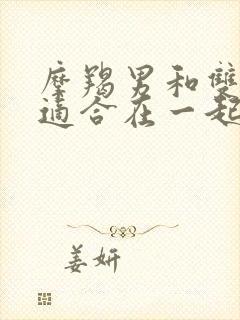 摩羯男和雙
適合在一起
姜妍